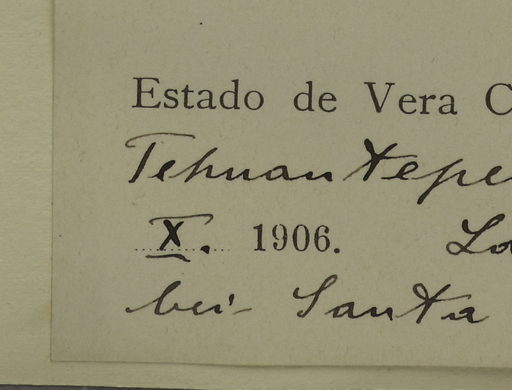 Estado de Vera C
Tehuantepe
X. 1906. Lo
bei Santa